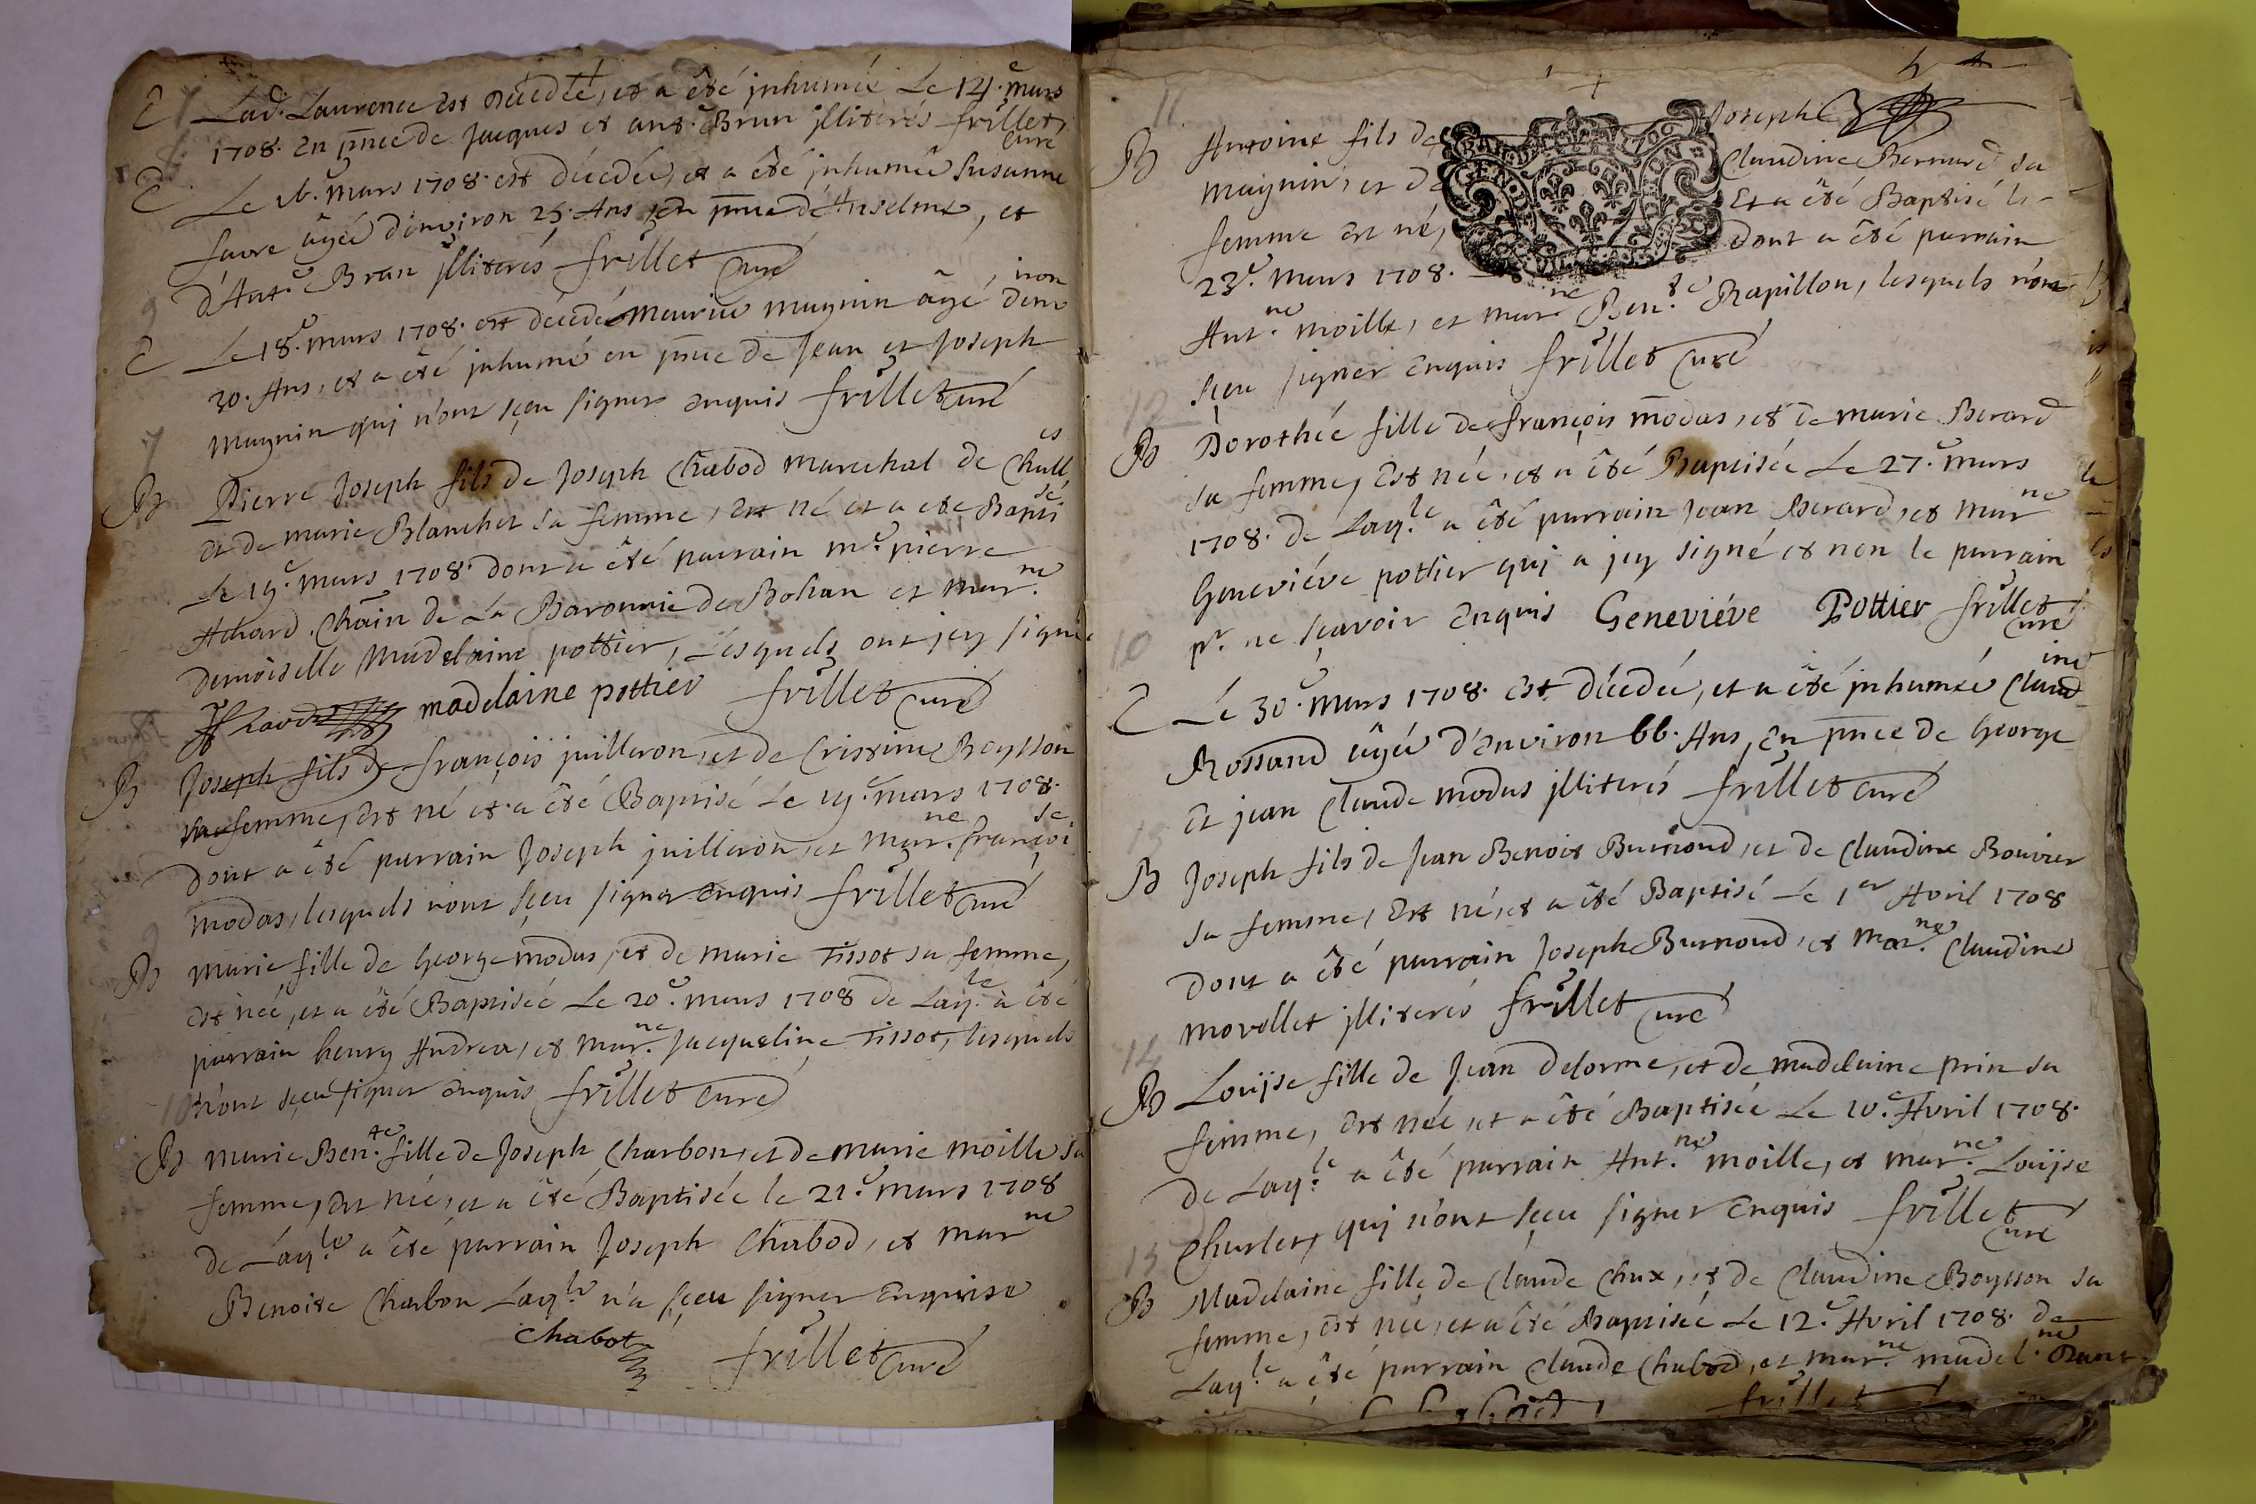 E Lad. Laurence est décédée, et a été inhumée Le 14.e mars
1708. En pnce de Jacques et ant. Brun jlliterés frillet,
curé
E Le 16.e mars 1708. est décédée, et a été jnhumée Susanne
favre âgée d'environ 25. Ans, En pnce d'Anselme, et
d'Ant.e Brun jlliterés frillet Curé
E Le 18.e mars 1708. est décédé Maurice magnin âgé denviron
30. Ans, et a été jnhumé en pnce de Jean et Joseph
magnin qui n'ont sçeu signer enquis frillet curé
7
B Pierre Joseph fils de Joseph Chabod marechal de Challes
et de marie Blanchet sa femme, Est né et a ete Baptisé
Le 19.e mars 1708. dont a été parrain m.e pierre
Achard Châin de La Baronnie de Bohan et mar.ne
Demoiselle Madelaine pottier, Lesquels ont jcy signé
Achard madelaine pottier frillet curé
B Joseph fils de françois juilleron, et de Cristine Boysson
sa femme, Est né et a été Baptisé Le 19.e mars 1708.
dont a été parrain Joseph juilleron, et mar.ne françoise
modas, lesquels n'ont sçeu signer enquis frillet curé
B marie fille de George modas, et de marie Tissot sa femme,
est née, et a été Baptisée Le 20.e mars 1708 de Laq.le à été
parrain henry Andrea, et mar.ne Jacqueline Tissot, lesquels
10 n'ont sçeu signer enquis frillet curé
B marie Ben.te fille de Joseph Charbon, et de marie moille sa
femme, est née, et a été Baptisée le 21.e mars 1708
de Laq.le a été parrain Joseph Chabod, et marne
Benoite Charbon Laq.le n'a sçeu signer Enquise
Chabot frillet curé
11
B Antoine fils de Joseph
magnin, et de Claudine Bernard sa
femme est né, Et a été Baptisé le
23.e mars 1708. Dont a été parrain
Ant.ne moille, et mar.ne Ben.te Rapillon, lesquels n'ont
sçeu signer enquis frillet curé
12
B Dorothée fille de françois modas, et de marie Berard
sa femme, Est née, et a été Baptisée Le 27.e mars
1708. de Laq.le a été parrain Jean Berard, et marne
Geneviéve pottier qui a jcy signé et non le parrain
10 pr. ne sçavoir enquis Geneviéve Pottier frillet
curé
E Le 30.e mars 1708. est décédée, et a été jnhumée Claudine
Rossand âgée d'environ 66. Ans, en pnce de George
et jean Claude modas jlliterés frillet curé
13
B Joseph fils de Jean Benoit Burnoud, et de Claudine Bouvier
sa femme, Est né, et a été Baptisé Le 1er Avril 1708
dont a été parrain Joseph Burnoud, et mar.ne Claudine
movollet jlliterés frillet curé
14
B Loujse fille de Jean Delorme, et de madelaine prin sa
femme, est née, et a été Baptisée Le 10.e Avril 1708.
de Laq.le a été parrain Ant.ne moille, et mar.ne Loujse
Charlet, qui n'ont sçeu signer Enquis frillet
curé
15
B Madelaine fille de Claude Chax, et de Claudine Boysson sa
femme, est née, et a été Baptisée Le 12.e Avril 1708. de
Laq.le a été parrain Claude Chabod, et mar.ne madel.ne
frillet